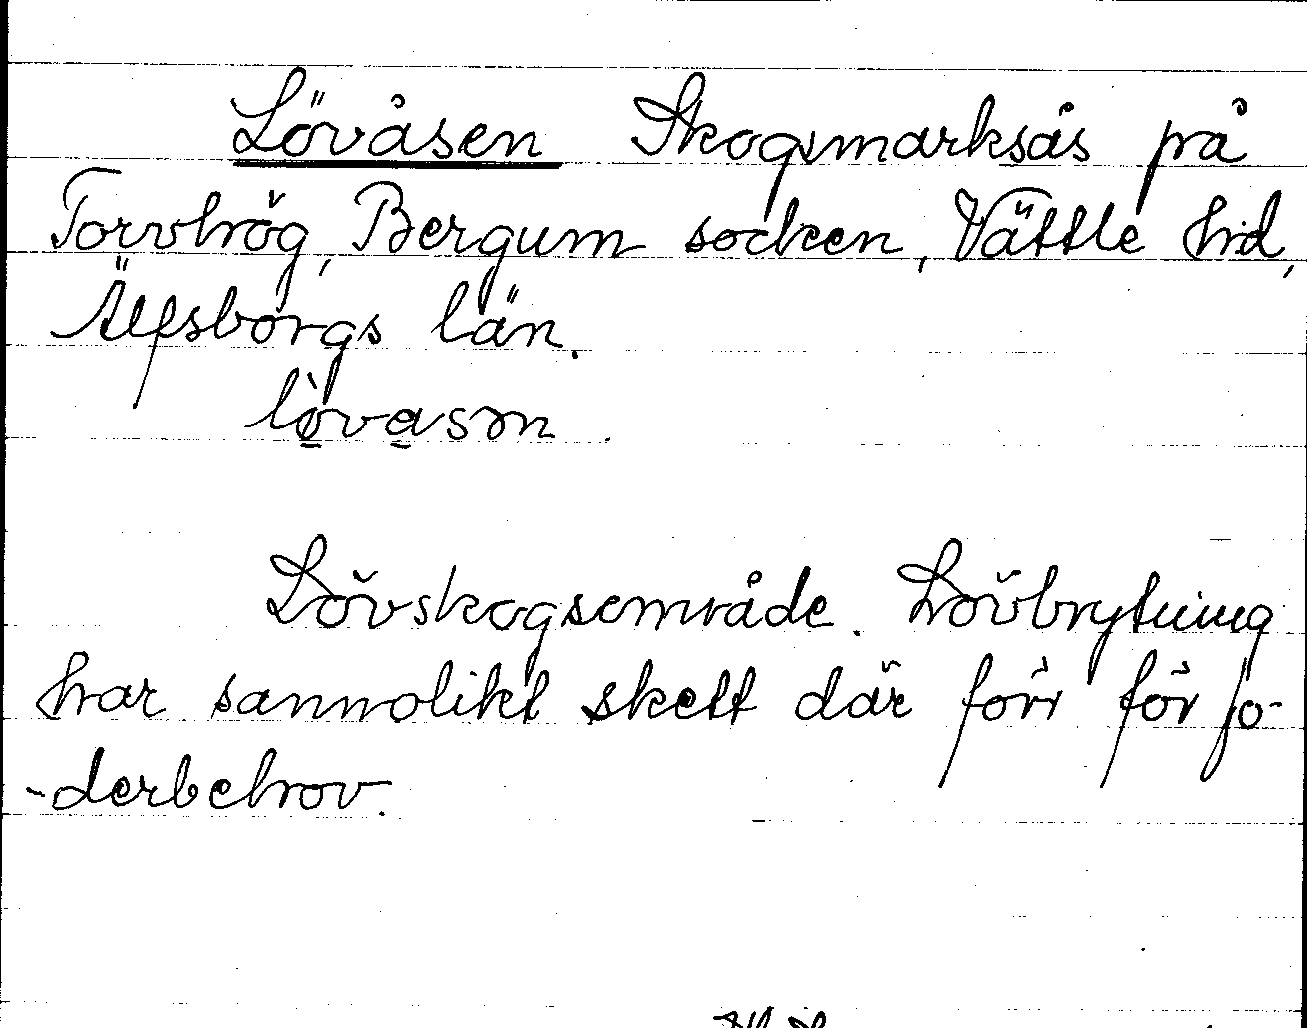 Lövåsen Skogsmarksås på
Torvhög, Bergum socken, Vättle hd,
Älfsborgs län.
lòvasm.
Lövskogsområde. Lövbrytning
har sannolikt skett där förr för fo-
-derbehov.